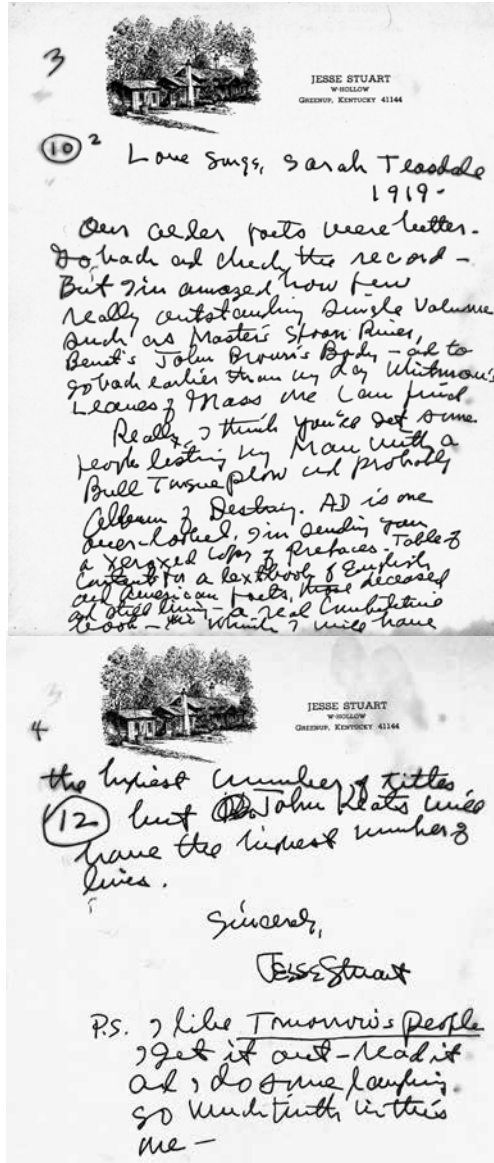 3
JESSE STUART
W-HOLLOW
GREENUP, KENTUCKY 41144
10 2 Love Songs, Sarah Teasdale
1919-
Our older poets were better.
Go back ad check the record -
But I'm amazed how few
really outstanding single volume
such as Master's Spoon River,
Benet's John Brown's Body - ad to
go back earlier than my day Whitman's
Leaves of Grass one can find.
Really, I think you'll get some
people listing my Man with a
Bull Tongue Plow and probably
Album of Destiny. AD is one
over-looked. I'm sending you
a xeroxed copy of Prefaces - Table of
Contents for a textbook of English
and American poets, those deceased
ad still living - a real
book - which I will have
4
JESSE STUART
W-HOLLOW
GREENUP, KENTUCKY 41144
the highest number of titles,
12 but John Keats will
have the highest number of
lines.
Sincerely,
Jesse Stuart
P.S. I like Tomorrow's People
I get it out - read it
ad I do some laughing.
so much truth in this
one -